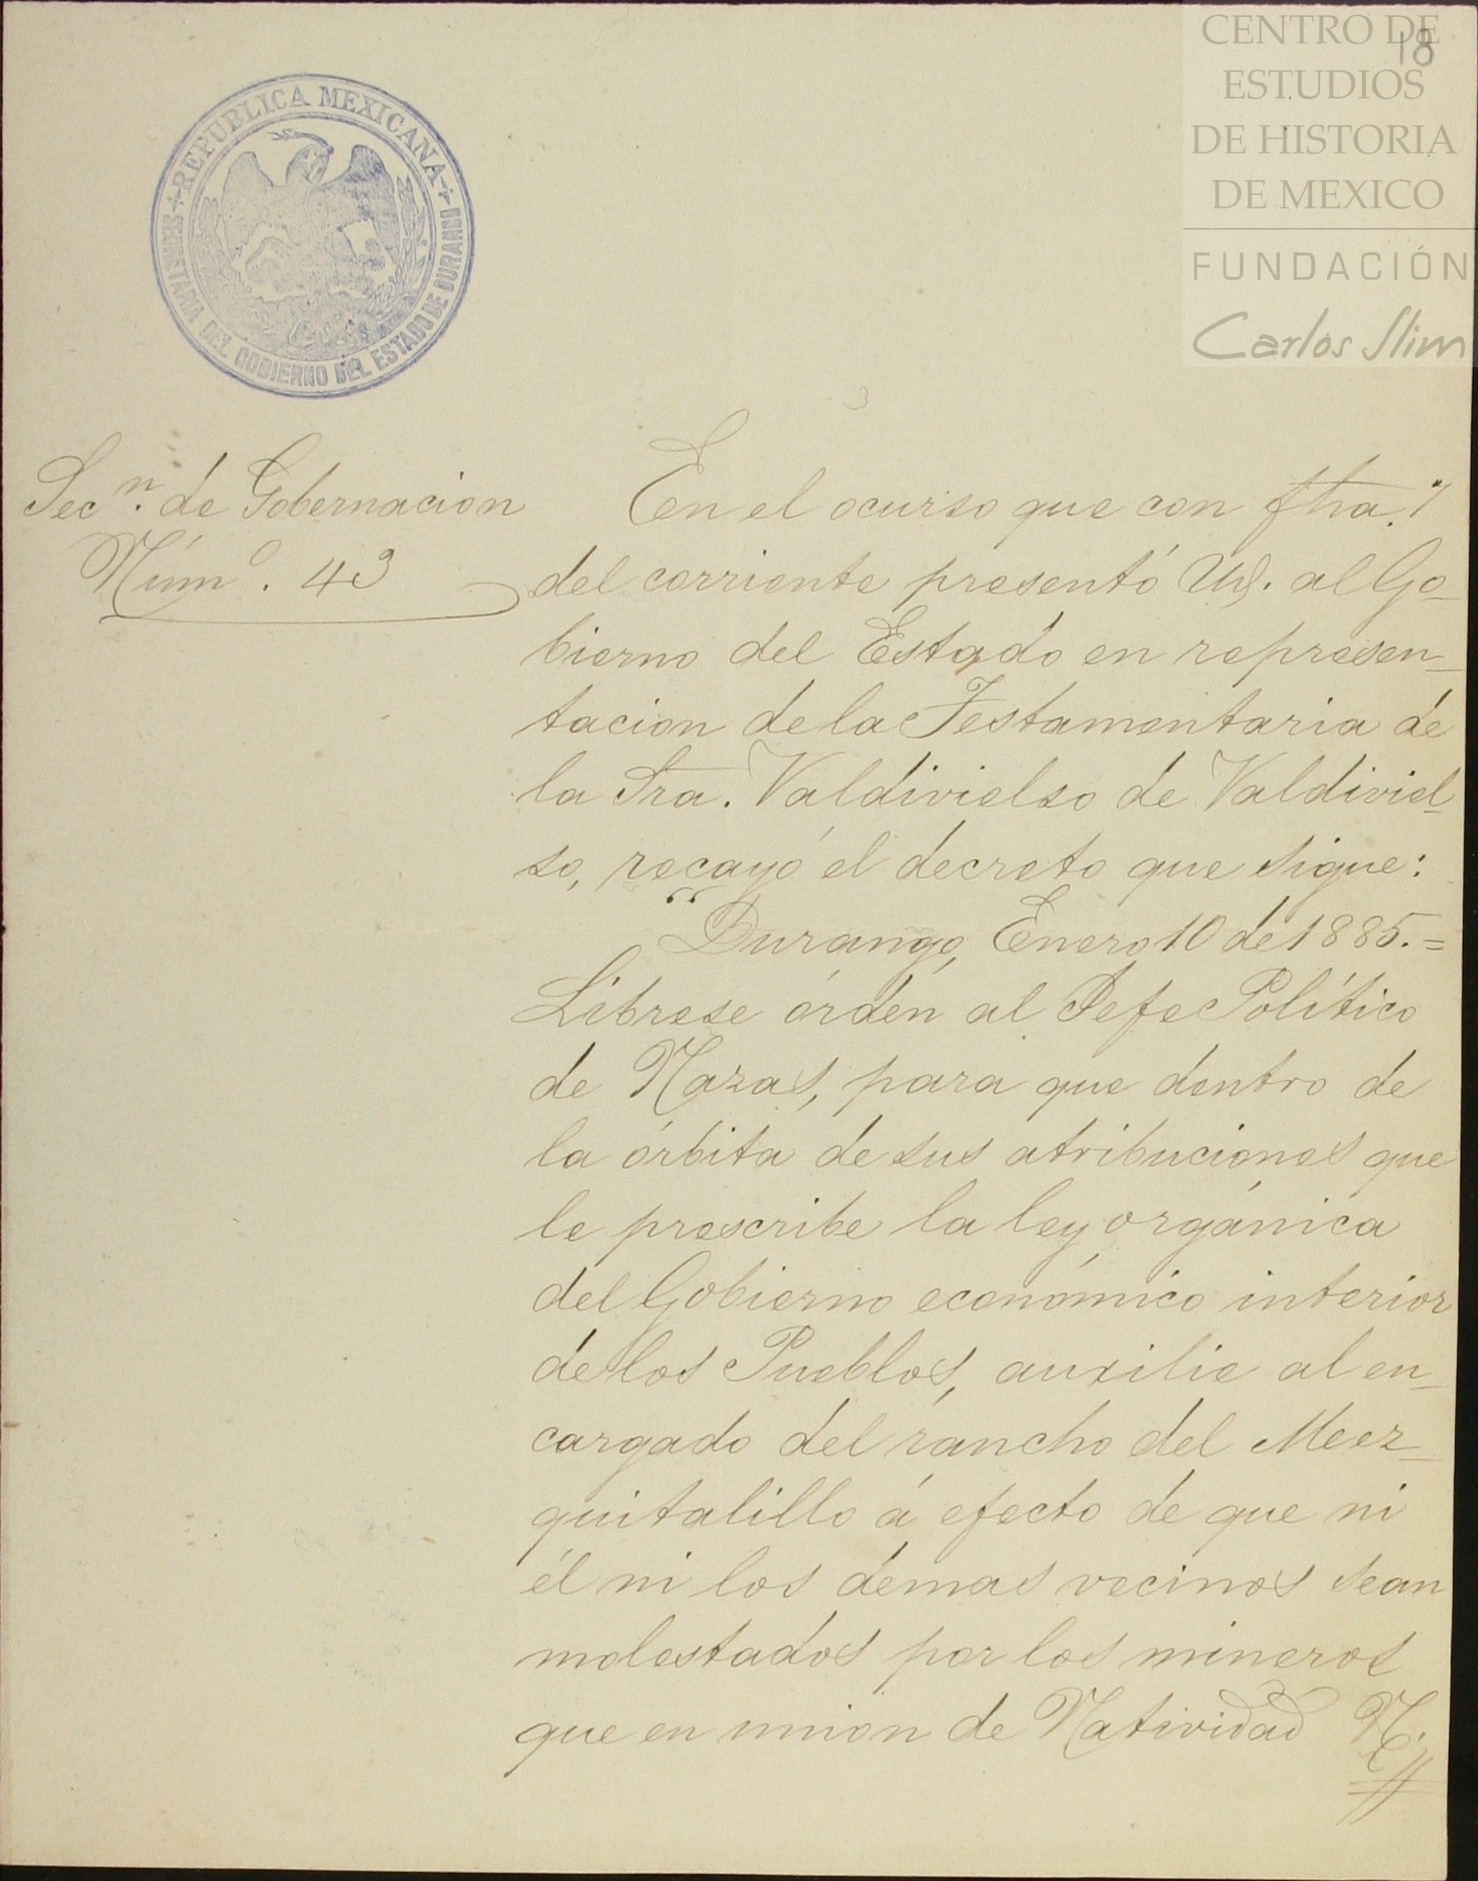 18
CENTRO DE
ESTUDIOS
DE HISTORIA
DE MEXICO
FUNDACIÓN
Carlos Slim
REPUBLICA MEXICANA
SECRETARIA DEL GOBIERNO DEL ESTADO DE DURANGO
Secn. de Gobernacion
Núm°. 43
En el ocurso que con fha.
del corriente presentó Ud. al Go-
bierno del Estado en represen-
tacion de la Testamentaria de
la Sra. Valdivielso de Valdiviel-
so, recayó el decreto que sigue:
"Durango, Enero 10 de 1885.=
Líbrese órden al Jefe Político
de Nazas, para que dentro de
la órbita de sus atribuciones que
le prescribe la ley orgánica
del Gobierno económico interior
de los Pueblos, auxilie al en-
cargado del rancho del Mez-
quitalillo á efecto de que ni
él ni los demas vecinos sean
molestados por los mineros
que en union de Natividad